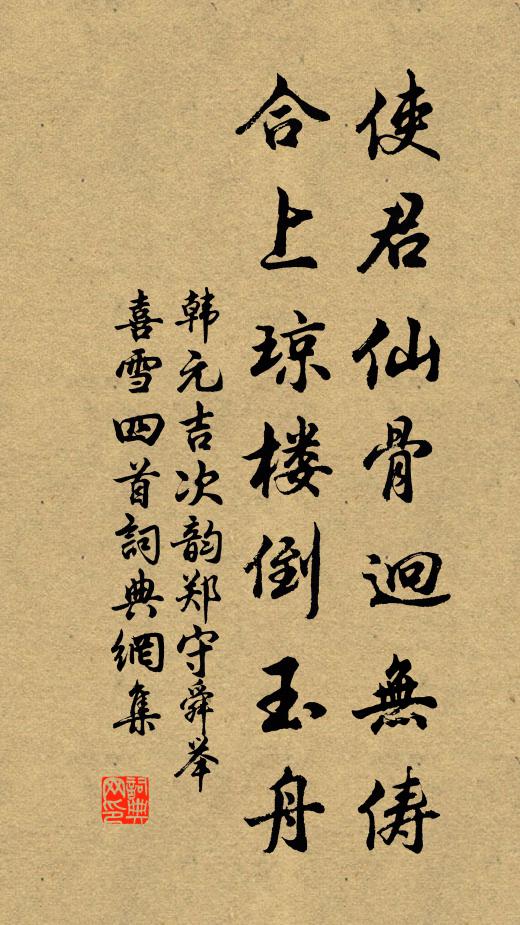 使君仙骨迥無俦
合上琼楼倒玉舟
韩元吉次韵郑守舜举
喜雪四首詞典網集
詞典网印